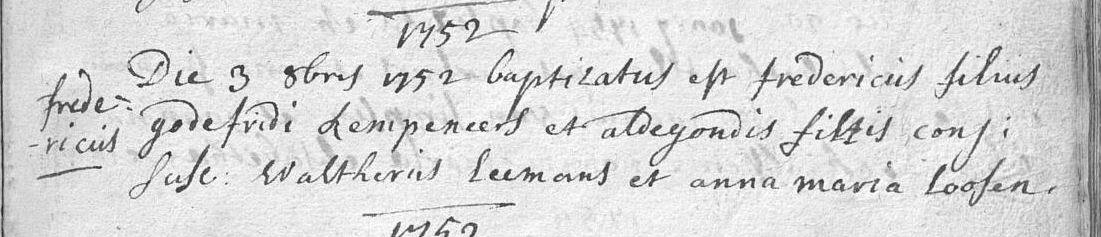 1752
Die 3 8bris 1752 baptizatus est fredericus filius
frede=
godefridi Lempeneers et aldegondis filtis conj:
-ricus
Susc: Waltherus Leemans et anna maria Loosen.
1752